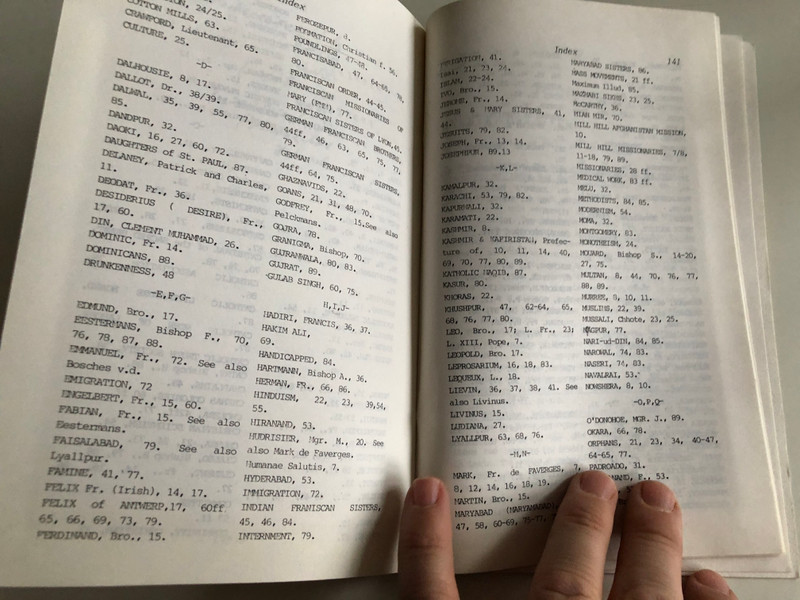 Index
24/25.
COTTON MILLS, 63.
CRANFORD, Lieutenant, 65.
CULTURE, 25.
-D-
DALHOUSIE, 8, 17.
DALLOT, Dr., 38/39.
DALWAL, 35, 39, 55, 77, 80,
85.
DANDPUR, 32.
DAOKI, 16, 27, 60, 72.
DAUGHTERS of St. PAUL, 87.
DELANEY, Patrick and Charles,
11.
DEODAT, Fr., 36.
DESIDERIUS ( DESIRE), Fr.,
17, 60.
DIN, CLEMENT MUHAMMAD, 26.
DOMINIC, Fr. 14.
DOMINICANS, 88.
DRUNKENNESS, 48
-E,F,G-
EDMUND, Bro., 17.
EESTERMANS, Bishop F., 70,
76, 78, 87, 88.
EMMANUEL, Fr., 72. See also
Bosches v.d.
EMIGRATION, 72
ENGELBERT, Fr., 15, 60.
FABIAN, Fr., 15. See also
Eestermans.
FAISALABAD, 79. See also
Lyallpur.
FAMINE, 41, 77.
FELIX Fr. (Irish), 14, 17.
FELIX of ANTWERP,17, 60ff
65, 66, 69, 73, 79.
FERDINAND, Bro., 15.
FEROZEPUR,
Christian f. 56.
FOUNDLINGS, 47-68.
FRANCISABAD, 47, 64-65, 78,
80.
FRANCISCAN ORDER, 44-45.
FRANCISCAN MISSIONARIES OF
MARY (FMM), 77.
FRANCISCAN SISTERS OF LYON,45.
GERMAN FRANCISCAN BROTHERS,
44ff, 46, 63, 65, 75, 77,
79.
GERMAN FRANCISCAN SISTERS,
44ff, 64, 75.
GHAZNAVIDS, 22.
GOANS, 21, 31, 48, 70.
GODFREY, Fr., 15.See also
Pelckmans.
GOJRA, 78.
GRANIGHA, Bishop, 70.
GUJRANWALA, 80, 83.
GUJRAT, 89.
GULAB SINGH, 60, 75.
H,I,J-
HADIRI, FRANCIS, 36, 37.
HAKIM ALI,
69.
HANDICAPPED, 84.
HARTMANN, Bishop A., 36.
HERMAN, FR., 66, 86.
HINDUISM, 22, 23, 39,54,
55.
HIRANAND, 53.
HUDRISIER, Mgr. M., 20. See
also Mark de Faverges.
Humanae Salutis, 7.
HYDERABAD, 53.
IMMIGRATION, 72.
INDIAN FRANISCAN SISTERS,
45, 46, 84.
INTERNMENT, 79.
Index 141
41.
21, 23, 24.
ISLAM, 22-24.
IVO, Bro., 15.
JEROME, Fr., 14.
JESUS & MARY SISTERS, 41,
44.
JESUITS, 79, 82.
JOSEPH, Fr., 13, 14.
JOSEPHPUR, 89.13
-K,L-
KAMALPUR, 32.
KARACHI, 53, 79, 82.
KAPURHALI, 32.
KARAMATI, 22.
KASHMIR, 8.
KASHMIR & KAFIRISTAN, Prefec-
ture of, 10, 11, 14, 40,
69, 70, 77, 80, 89.
KATHOLIC NAQIB, 87.
KASUR, 80.
KHORAS, 22.
KHUSHPUR, 47, 62-64, 65,
68, 76, 77, 80.
LEO, Bro., 17; L. Fr., 23;
L. XIII, Pope, 7.
LEOPOLD, Bro. 17.
LEPROSARIUM, 16, 18, 83.
LEQUEUX, L., 18.
LIEVIN, 36, 37, 38, 41. See
also Livinus.
LIVINUS, 15.
LUDIANA, 27.
LYALLPUR, 63, 68, 76.
-M,N-
MARK, Fr. de FAVERGES, 7,
8, 12, 14, 16, 18, 19.
MARTIN, Bro., 15.
MARYABAD (MARYAMABAD),
47, 58, 60-69, 75-77,
MARYABAD SISTERS, 86.
MASS MOVEMENTS, 21 ff.
Maximum Illud, 85.
MAZHABI SIKHS, 23, 25.
McCARTHY, 36.
MIAN MIR, 70.
MILL HILL AFGHANISTAN MISSION,
10.
MILL HILL MISSIONARIES, 7/8,
11-18, 79, 89.
MISSIONARIES, 28 ff.
MEDICAL WORK, 83 ff.
MELU, 32.
METHODISTS, 84, 85.
MODERNISM, 54.
MOMA, 32.
MONTGOMERY, 83.
MONOTHEISM, 24.
MOUARD, Bishop S., 14-20,
27, 75.
MULTAN, 8, 44, 70, 76, 77,
88, 89.
MURREE, 9, 10, 11.
MUSLIMS, 22, 39.
MUSSALI, Chhote, 23, 25.
NAGPUR, 77.
NARI-ud-DIN, 84, 85.
NAROWAL, 74, 83.
NASERI, 74, 83.
NAVALRAI, 53.
NOWSHERA, 8, 10.
-O,P,Q-
O'DONOHOE, MGR. J., 89.
OKARA, 66, 78.
ORPHANS, 21, 23, 34, 40-47,
64-65, 77.
PADROADO, 31.
F., 53.